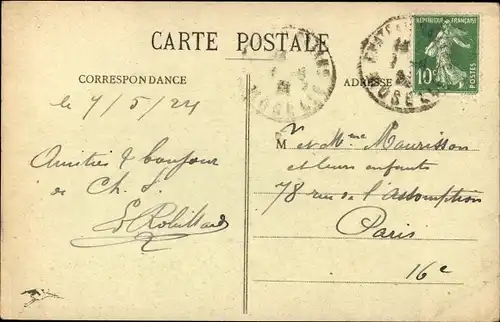 CARTE POSTALE
CORRESPONDANCE
ADRESSE
RÉPUBLIQUE FRANÇAISE
10c
POSTES
MOSELLE
MOSELLE
le 7/5/24
Amitiés & bonjour
de Ch. S.
Robillard
M et Mme Maurisson
et leurs enfants
78 rue de l'assomption
Paris
16e